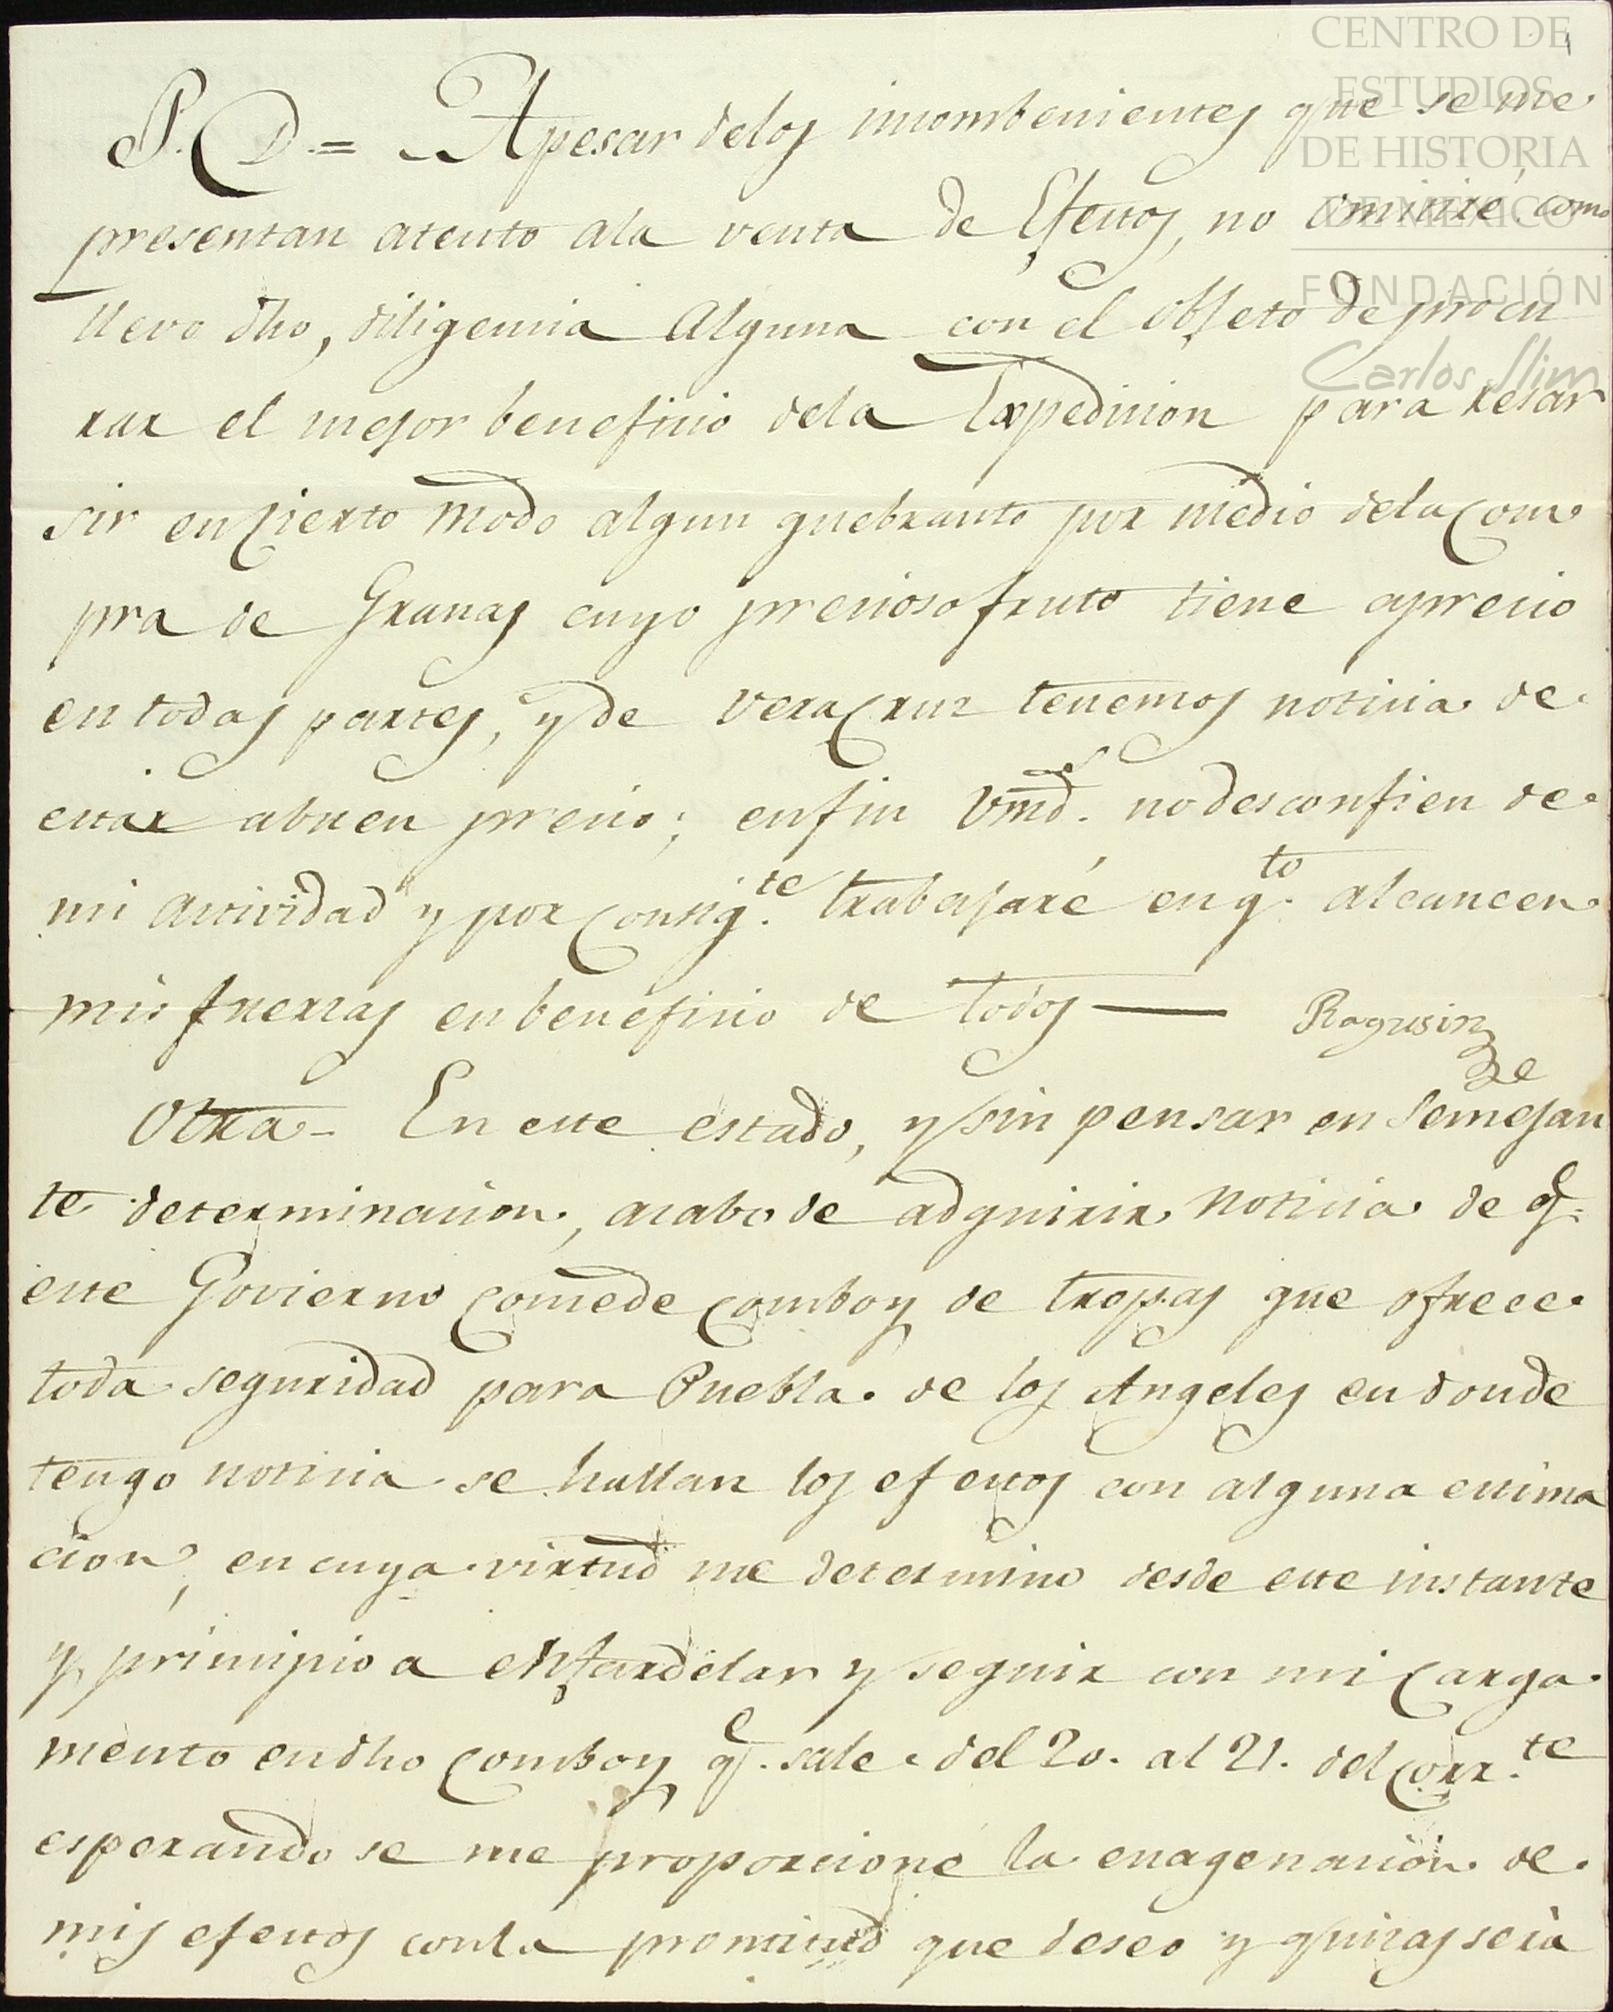 CENTRO DE
ESTUDIOS
DE HISTORIA
DE MÉXICO
FUNDACIÓN
Carlos Slim
P. D. = Apesar delos incombenientes que se me
presentan atento ala venta de Efectos, no omitiré, como
llevo dho, diligencia alguna con el objeto de procu
rar el mejor beneficio dela Expedicion para resar
sir en cierto modo algun quebranto por medio dela com
pra de Granas cuyo precioso fruto tiene aprecio
en todas partes, y de VeraCruz tenemos noticia de
estar abuen precio; enfin Vmds. no desconfien de
mi actividad y por consigte. trabajaré en qto. alcancen
mis fuerzas en beneficio de todos — Ragusin
Otra - En este estado, y sin pensar en semejan
te determinacion, acabo de adquirir noticia de qe.
este Govierno concede comboy de tropas que ofrece
toda seguridad para Puebla de los Angeles en donde
tengo noticia se hallan los efectos con alguna estima
cion, en cuya virtud me determino desde este instante
y principio a enfardelar y seguir con mi carga
mento en dho comboy qe. sale del 20. al 21. del corrte.
esperando se me proporcione la enagenacion de
mis efectos conla prontitud que deseo y quizas será